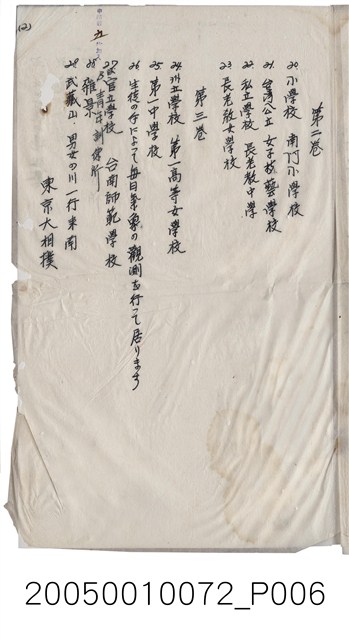 第二巻
20 小学校 南門小学校
21 台湾公立 女子技藝学校
22 私立學校 長老教中学
23 長老教女学校
第三巻
24 州立學校 第一高等女學校
25 第一中學校
26 生徒の手によって毎日氣象の観測を行って居ります
27 官立學校 台南師範學校
28 雑景
29 武蔵山、男女の川一行来南
東京大相撲
(2)
20050010072_P006